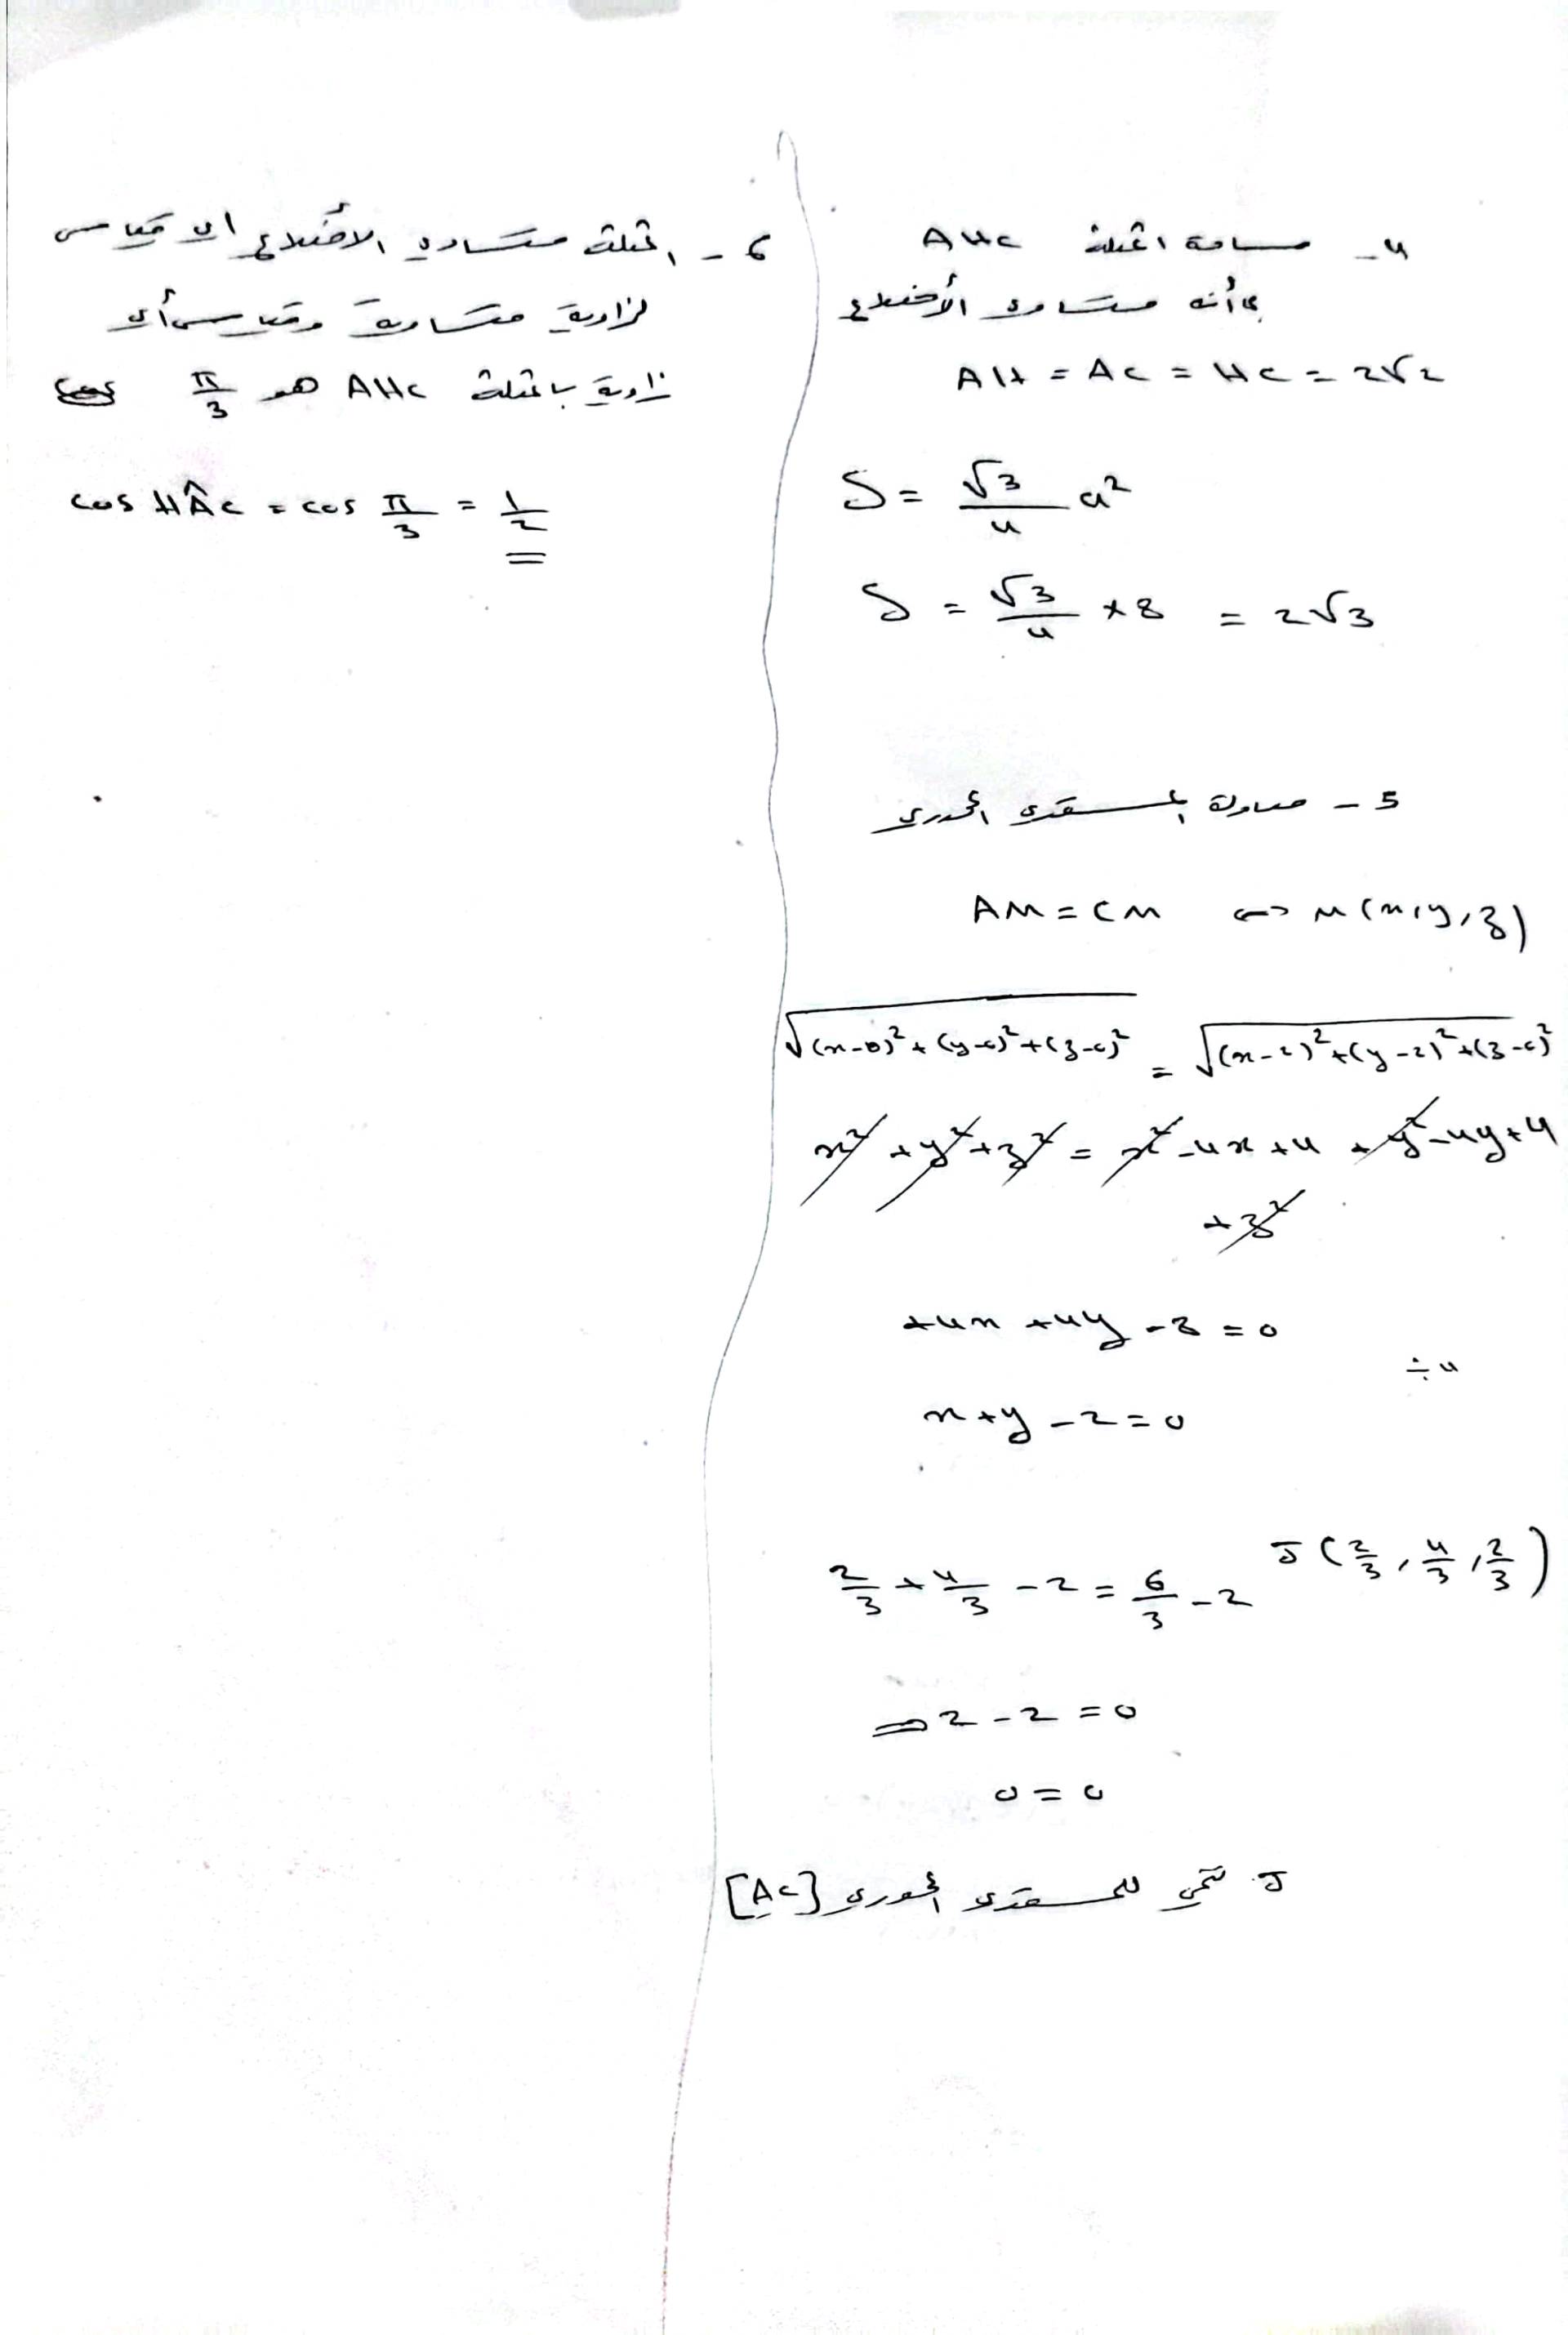 4- مساحة المثلث AHC
بما أنه متساوي الأضلاع
AH = AC = HC = 2√2
S = √3/4 a²
S = √3/4 × 8 = 2√3
5 - معادلة المستوي المحوري
AM = CM ⇔ M(x, y, z)
√((x-0)² + (y-0)² + (z-0)²) = √((x-2)² + (y-2)² + (z-0)²)
x² + y² + z² = x² - 4x + 4 + y² - 4y + 4
+ z²
+4x + 4y - 8 = 0
÷ 4
x + y - 2 = 0
J (2/3, 4/3, 2/3)
2/3 + 4/3 - 2 = 6/3 - 2
⇒ 2 - 2 = 0
0 = 0
J تنتمي للمستوي المحوري [AC]
6 - المثلث متساوي الأضلاع أي قياس
الزاوية متساوية وقياس أي
زاوية بالمثلث AHC هو π/3
cos HÂC = cos π/3 = 1/2